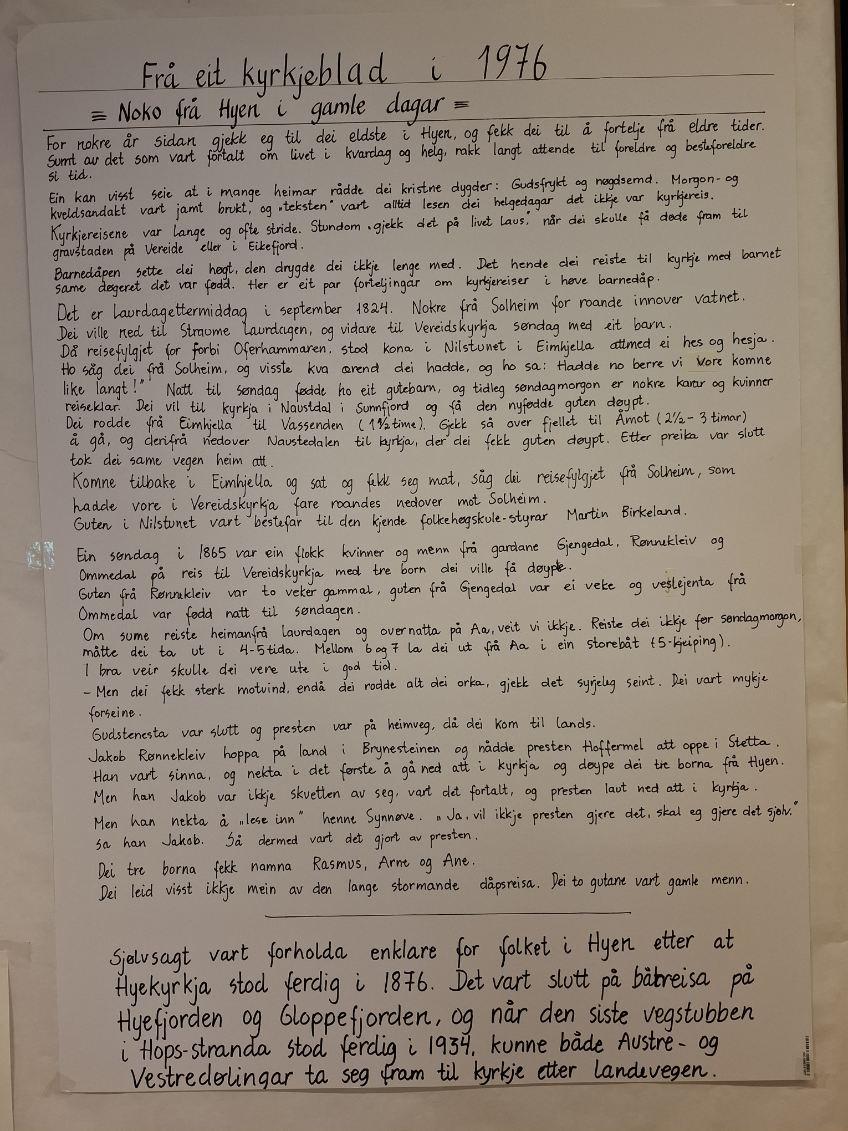 Frå eit kyrkjeblad i 1976
= Noko frå Hyen i gamle dagar =
For nokre år sidan gjekk eg til dei eldste i Hyen, og fekk dei til å fortelje frå eldre tider.
Sumt av det som vart fortalt om livet i kvardag og helg, rakk langt attende til foreldre og besteforeldre
si tid.
Ein kan visst seie at i mange heimar rådde dei kristne dygder: Gudsfrykt og nøgdsemd. Morgon- og
kveldsandakt vart jamt brukt, og "teksten" vart alltid lesen dei helgedagar det ikkje var kyrkjereis.
Kyrkjereisene var lange og ofte stride. Stundom "gjekk det på livet laus", når dei skulle få døde fram til
gravstaden på Vereide eller i Eikefjord.
Barnedåpen sette dei høgt, den drygde dei ikkje lenge med. Det hende dei reiste til kyrkje med barnet
same døgeret det var fødd. Her er eit par forteljingar om kyrkjereiser i høve barnedåp.
Det er laurdagettermiddag i september 1824. Nokre frå Solheim for roande innover vatnet.
Dei ville ned til Straume laurdagen, og vidare til Vereidskyrkja søndag med eit barn.
Då reisefylgjet for forbi Oferhammaren, stod kona i Nilstunet i Eimhjella attmed ei hes og hesja.
Ho såg dei frå Solheim, og visste kva ærend dei hadde, og ho sa: Hadde no berre vi vore komne
like langt!" Natt til søndag fødde ho eit gutebarn, og tidleg søndagmorgon er nokre karar og kvinner
reiseklar. Dei vil til kyrkja i Naustdal i Sunnfjord og få den nyfødde guten døypt.
Dei rodde frå Eimhjella til Vassenden (1 1/2 time). Gjekk så over fjellet til Åmot (2 1/2 - 3 timar)
å gå, og derifrå nedover Naustedalen til kyrkja, der dei fekk guten døypt. Etter preika var slutt
tok dei same vegen heim att.
Komne tilbake i Eimhjella og sat og fekk seg mat, såg dei reisefylgjet frå Solheim, som
hadde vore i Vereidskyrkja fare roandes nedover mot Solheim.
Guten i Nilstunet vart bestefar til den kjende folkehøgskule-styrar Martin Birkeland.
Ein søndag i 1865 var ein flokk kvinner og menn frå gardane Gjengedal, Rønnekleiv og
Ommedal på reis til Vereidskyrkja med tre born dei ville få døypt.
Guten frå Rønnekleiv var to veker gammal, guten frå Gjengedal var ei veke og veslejenta frå
Ommedal var fødd natt til søndagen.
Om sume reiste heimanfrå laurdagen og overnatta på Aa, veit vi ikkje. Reiste dei ikkje før søndagmorgon,
måtte dei ta ut i 4-5 tida. Mellom 6 og 7 la dei ut frå Aa i ein storebåt (5-kjeiping).
I bra veir skulle dei vere ute i god tid.
- Men dei fekk sterk motvind, endå dei rodde alt dei orka, gjekk det syrjeleg seint. Dei vart mykje
forseine.
Gudstenesta var slutt og presten var på heimveg, då dei kom til lands.
Jakob Rønnekleiv hoppa på land i Brynesteinen og nådde presten Hoffermel att oppe i Stetta.
Han vart sinna, og nekta i det første å gå ned att i kyrkja og døype dei tre borna frå Hyen.
Men han Jakob var ikkje skvetten av seg, vart det fortalt, og presten laut ned att i kyrkja.
Men han nekta å "lese inn" henne Synnøve. "Ja, vil ikkje presten gjere det, skal eg gjere det sjølv."
sa han Jakob. Så dermed vart det gjort av presten.
Dei tre borna fekk namna Rasmus, Arne og Ane.
Dei leid visst ikkje mein av den lange stormande dåpsreisa. Dei to gutane vart gamle menn.
Sjølvsagt vart forholda enklare for folket i Hyen etter at
Hyekyrkja stod ferdig i 1876. Det vart slutt på båtreisa på
Hyefjorden og Gloppefjorden, og når den siste vegstubben
i Hops-stranda stod ferdig i 1934, kunne både Austre- og
Vestredølingar ta seg fram til kyrkje etter landevegen.